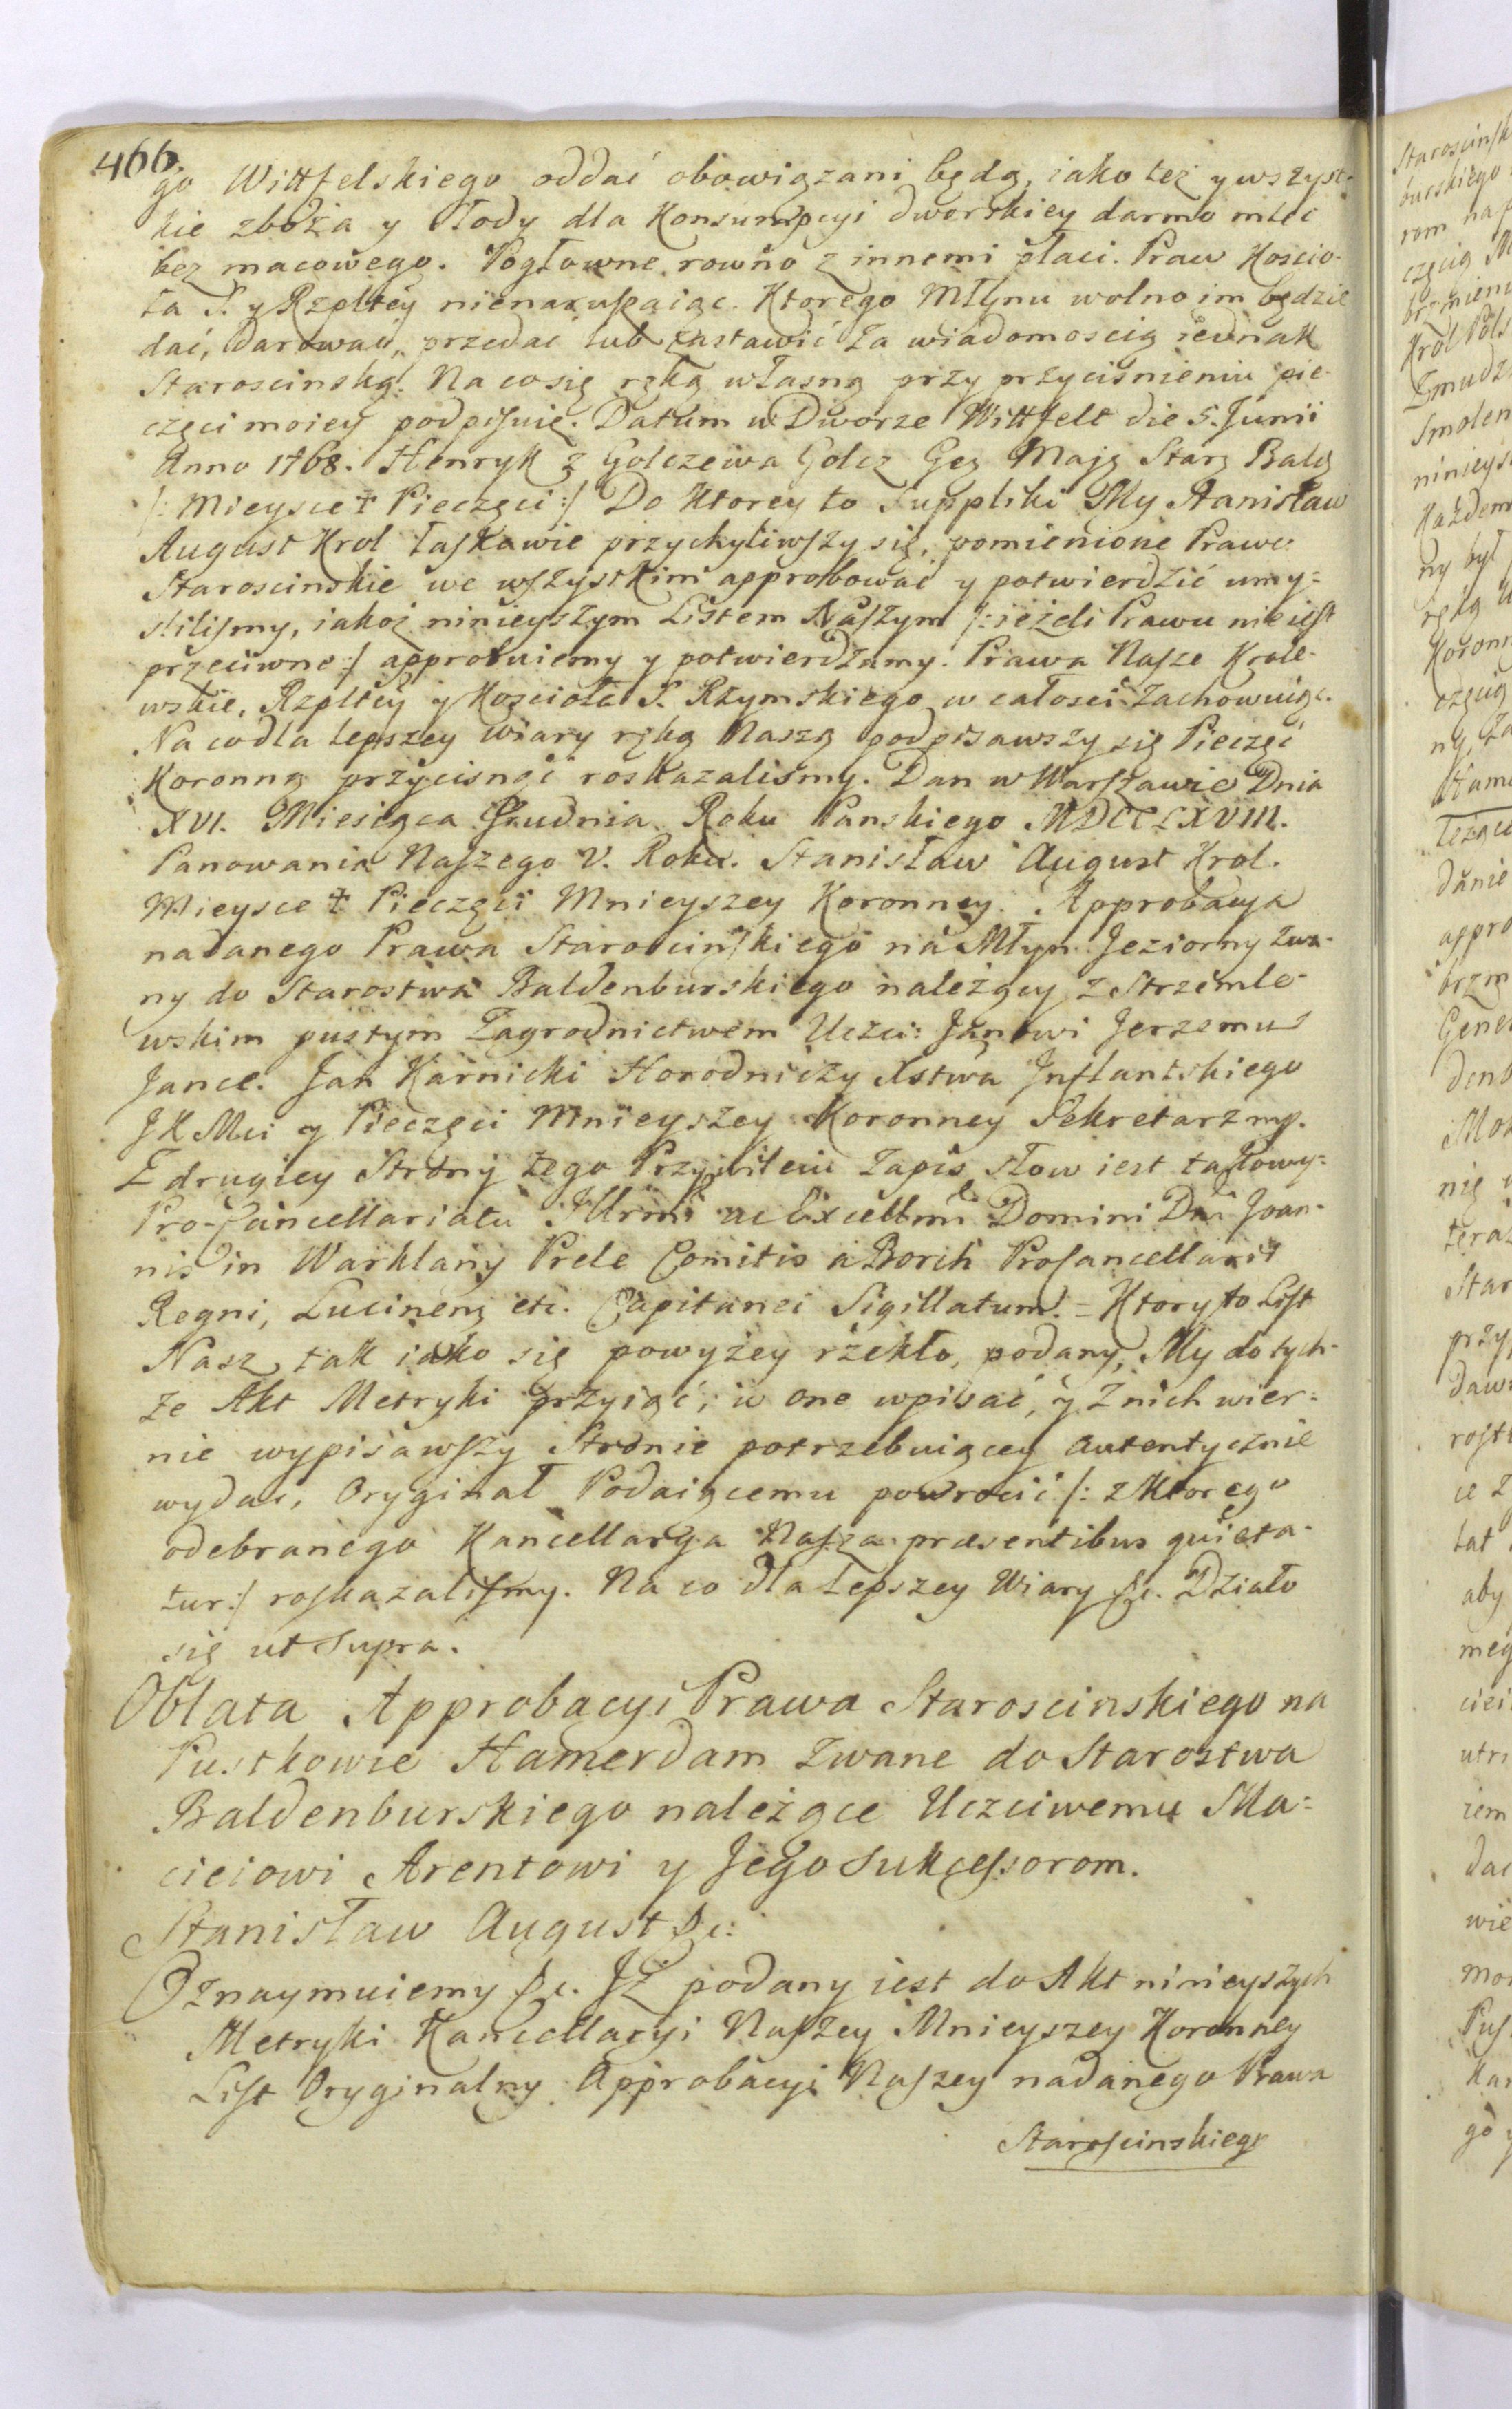 466.
go Wittfelskiego oddać obowiązani będą, iako też y wszyst-
kie zboża y słody dla Konsumpcyi dworskiey darmo mleć
bez macowego. Pogłowne rowno z innemi płaci. Praw Koscio-
ła S. y Rzpltey nienaruszaiąc. Ktorego Młynu wolno im będzie
dać, darować, przedać lub zastawić za wiadomoscią iednak
Staroscinską. Na co się ręką własną przy przycisnieniu pie-
częci moiey podpisuię. Datum w Dworze Wittfelt die 5. Junii
Anno 1768. Henryk z Golczewa Golcz Gen Maj Star Bald
/: Mieysce ☩ Pieczęci :/ Do Ktorey to Suppliki My Stanisław
August Krol łaskawie przychyliwszy się, pomienione Prawo
Staroscinskie we wszystkim approbować y potwierdzić umy=
slilismy, iakoż ninieyszym Listem Naszym /: ieżeli Prawu nie iest
przeciwne :/ approbuiemy y potwierdzamy. Prawa Nasze Krole-
wskie, Rzpltey y Koscioła S. Rzymskiego w całosci zachowuiąc.
Na co dla lepszey wiary ręką Naszą podpisawszy się Pieczęć
Koronną przycisnąć roskazalismy. Dan w Warszawie Dnia
XVI. Miesiąca Grudnia Roku Panskiego MDCCLXVIII.
Panowania Naszego V. Roku. Stanisław August Krol.
Mieysce ☩ Pieczęci Mnieyszey Koronney. Approbacya
nadanego Prawa Staroscinskiego na Młyn Jeziorny zwa-
ny do Starostwa Baldenburskiego należący z Strzemle-
wskim pustym Zagrodnictwem Uczci: Janowi Jerzemu
Jance. Jan Karnicki Horodniczy Xstwa Inflantskiego
JKMci y Pieczęci Mnieyszey Koronney Sekretarz mp.
Z drugiey Strony tego Przywileiu Zapis słow iest takowy:
Pro-Cancellariatu Illrmi ac Excellmi Domini Dni Joan-
nis in Warklany Prele Comitis a Borch ProCancellarii
Regni, Lucinens etc. Capitanei Sigillatum. = Ktory to List
Nasz tak iako się powyżey rzekło, podany, My do tych-
że Akt Metryki przyiąć, w one wpisać, y z nich wier=
nie wypisawszy Stronie potrzebuiącey autentycznie
wydać, Oryginał Podaiącemu powrocić /: z Ktorego
odebranego Kancellarya Nasza præsentibus quieta-
tur :/ roskazalismy. Na co dla lepszey Wiary &c. Działo
się ut Supra.
Oblata Approbacyi Prawa Staroscinskiego na
Pustkowie Hamerdam zwane do Starostwa
Baldenburskiego należące Uczciwemu Ma=
cieiowi Arentowi y Jego Sukcessorom.
Stanisław August &c:
Oznaymuiemy &c. Iż podany iest do Akt ninieyszych
Metryki Kancellaryi Naszey Mnieyszey Koronney
List Oryginalny Approbacyi Naszey nadanego Prawa
Staroscinskiego